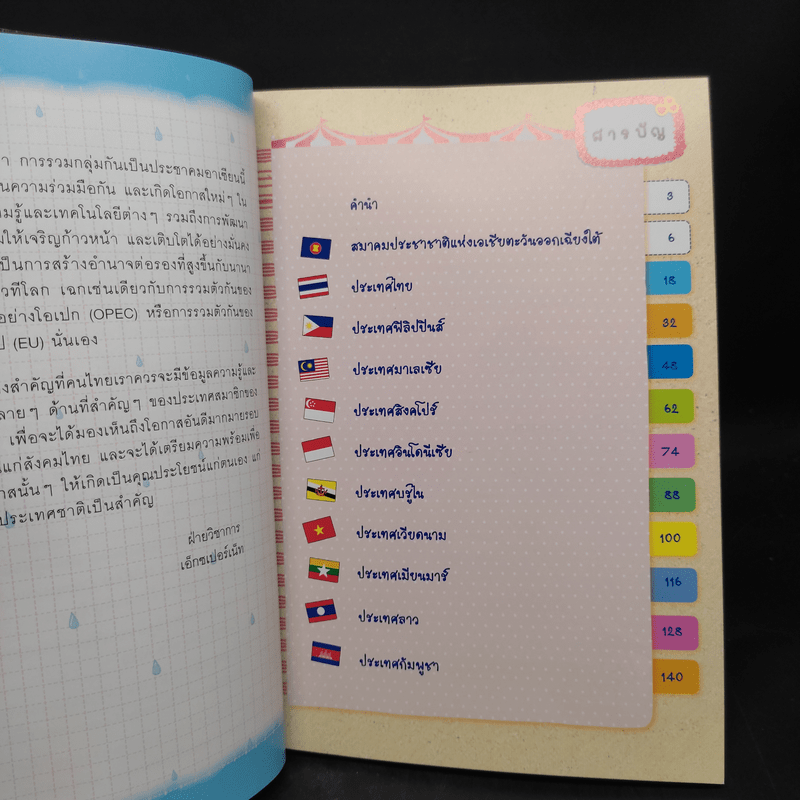 า การรวมกลุ่มกันเป็นประชาคมอาเซียนนี้
นความร่วมมือกัน และเกิดโอกาสใหม่ๆ ใน
มรู้และเทคโนโลยีต่างๆ รวมถึงการพัฒนา
มให้เจริญก้าวหน้า และเติบโตได้อย่างมั่นคง
ป็นการสร้างอำนาจต่อรองที่สูงขึ้นกับนานา
วทีโลก เฉกเช่นเดียวกับการรวมตัวกันของ
อย่างโอเปก (OPEC) หรือการรวมตัวกันของ
ป (EU) นั่นเอง
งสำคัญที่คนไทยเราควรจะมีข้อมูลความรู้และ
ลายๆ ด้านที่สำคัญๆ ของประเทศสมาชิกของ
เพื่อจะได้มองเห็นถึงโอกาสอันดีมากมายรอบ
นแก่สังคมไทย และจะได้เตรียมความพร้อมเพื่อ
าสนั้นๆ ให้เกิดเป็นคุณประโยชน์แก่ตนเอง แก่
ประเทศชาติเป็นสำคัญ
ฝ่ายวิชาการ
เอ็กซเปอร์เน็ท
สารบัญ
คำนำ 3
สมาคมประชาชาติแห่งเอเชียตะวันออกเฉียงใต้ 6
ประเทศไทย 18
ประเทศฟิลิปปินส์ 32
ประเทศมาเลเซีย 48
ประเทศสิงคโปร์ 62
ประเทศอินโดนีเซีย 74
ประเทศบรูไน 88
ประเทศเวียดนาม 100
ประเทศเมียนมาร์ 116
ประเทศลาว 128
ประเทศกัมพูชา 140